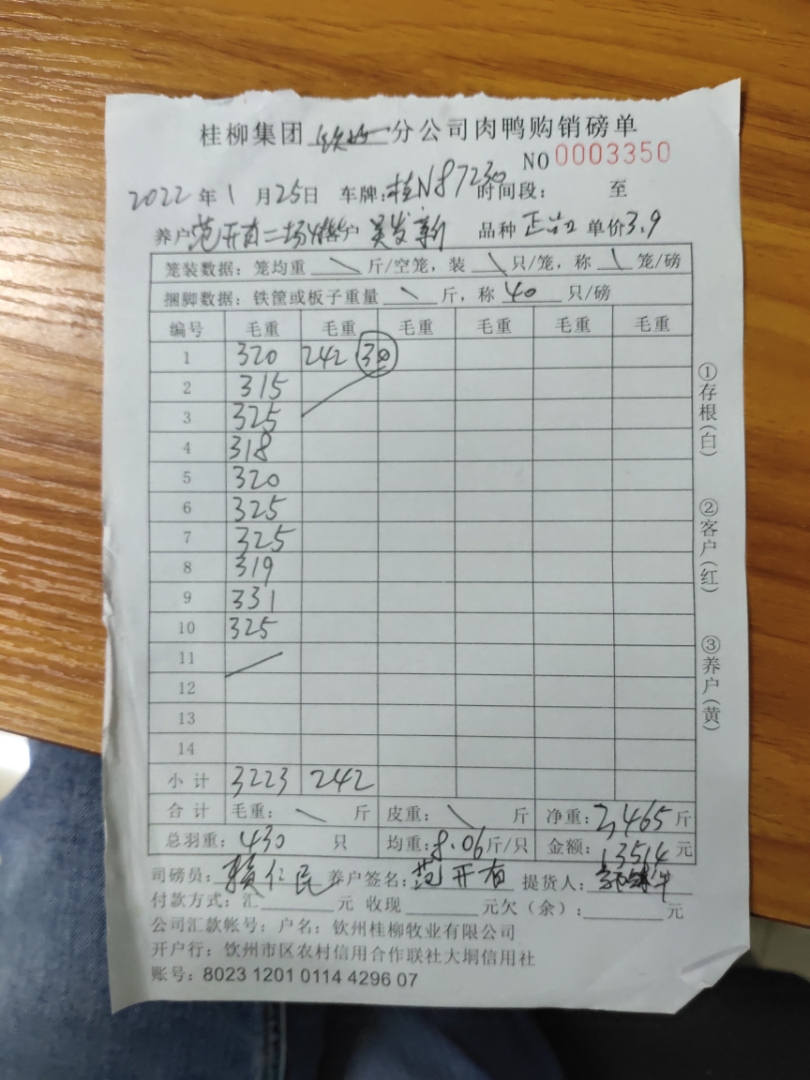 桂柳集团 钦州 分公司肉鸭购销磅单
NO 0003350
2022 年 1 月 25 日 车牌: 桂N87230 时间段: 至
养户 范开有二场 客户 吴发新 品种 正番 单价 3.9
笼装数据: 笼均重 \ 斤/空笼, 装 \ 只/笼, 称 \ 笼/磅
捆脚数据: 铁筐或板子重量 \ 斤, 称 40 只/磅
编号 毛重 毛重 毛重 毛重 毛重 毛重
1 320 242 30
2 315
3 325
4 318
5 320
6 325
7 325
8 319
9 331
10 325
11
12
13
14
小计 3223 242
合计 毛重: \ 斤 皮重: \ 斤 净重: 3465 斤
总羽重: 430 只 均重: 8.06 斤/只 金额: 13514 元
司磅员: 赖仁民 养户签名: 范开有 提货人:
付款方式: 汇 元 收现 元欠(余): 元
公司汇款帐号: 户名: 钦州桂柳牧业有限公司
开户行: 钦州市区农村信用合作联社大垌信用社
账号: 8023 1201 0114 4296 07
①存根(白)
②客户(红)
③养户(黄)